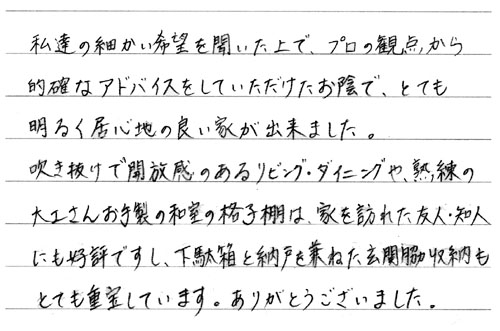 私達の細かい希望を聞いた上で、プロの観点から
的確なアドバイスをしていただけたお陰で、とても
明るく居心地の良い家が出来ました。
吹き抜けで開放感のあるリビング・ダイニングや、熟練の
大工さんお手製の和室の格子棚は、家を訪れた友人・知人
にも好評ですし、下駄箱と納戸を兼ねた玄関脇収納も
とても重宝しています。ありがとうございました。